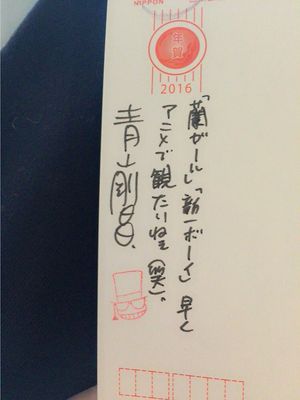 NIPPON
年賀
2016
「蘭ガール」「新一ボーイ」早く
アニメで観たいねぇ(笑)。
青山剛昌